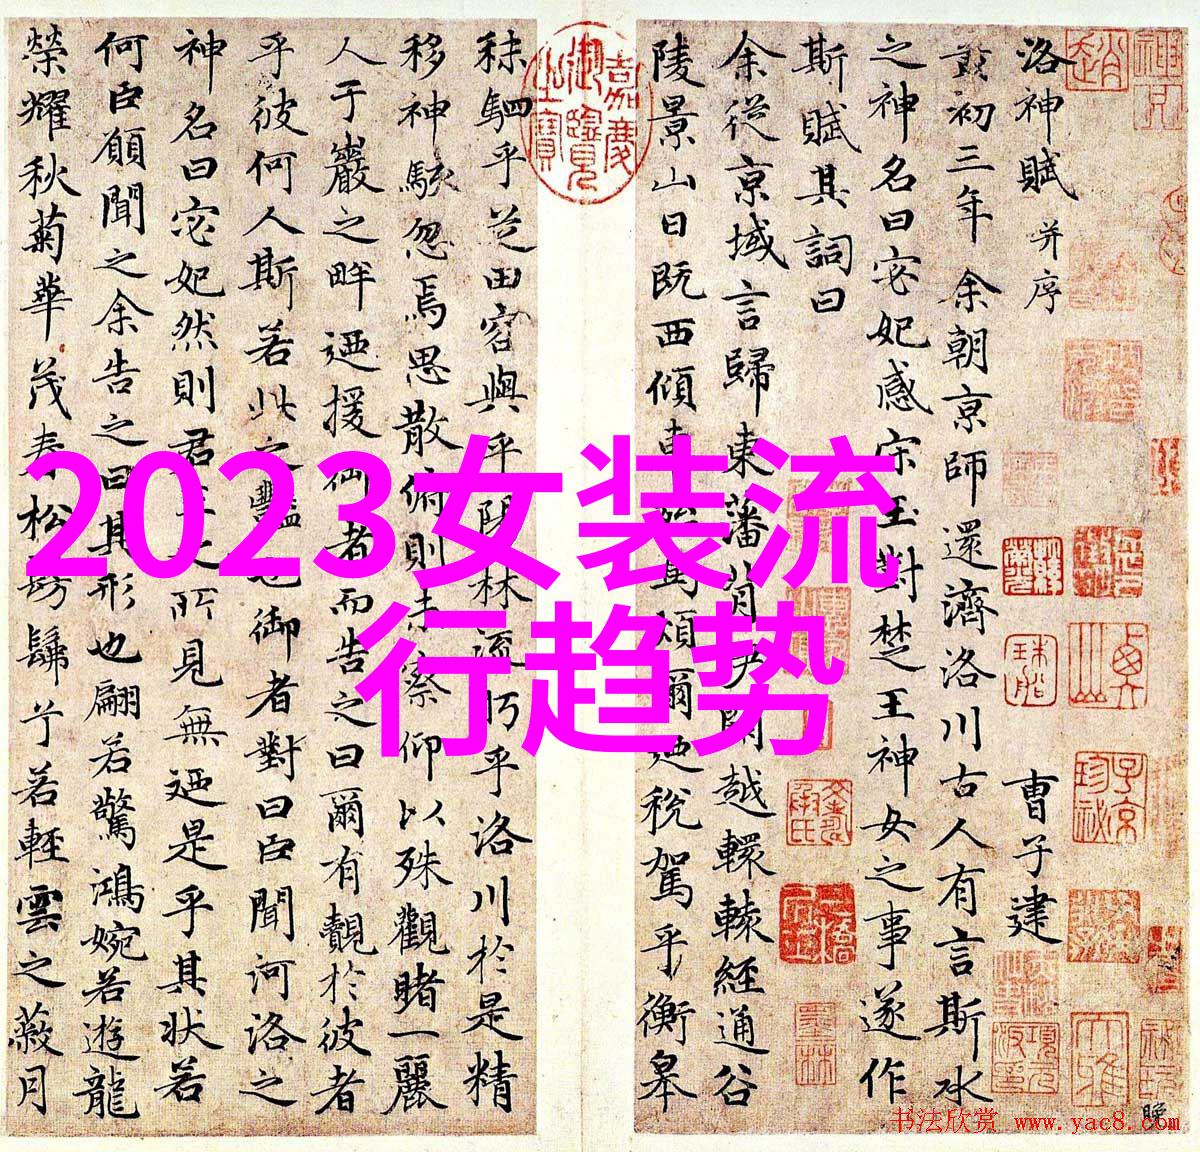 2023女装流
行趋势
洛神賦 并序 曹子建
黃初三年余朝京師還濟洛川古人有言斯水
之神名曰宓妃感宋玉對楚王神女之事遂作
斯賦其詞曰
余從京域言歸東藩背尹闕越轘轅經通谷
陵景山日既西傾車殆馬煩爾迺稅駕乎衡皋
秣駟乎芝田容與乎陽林流眄乎洛川於是精
移神駭忽焉思散俯則未察仰以殊觀睹一麗
人于巖之畔迺援御者而告之曰爾有覿於彼者
乎彼何人斯若此之豔也御者對曰臣聞河洛之
神名曰宓妃然則君王之所見無迺是乎其狀若
何臣願聞之余告之曰其形也翩若驚鴻婉若遊龍
榮耀秋菊華茂春松髣髴兮若輕雲之蔽月
嘉慶御覽之寶
书法欣赏 www.yac8.com